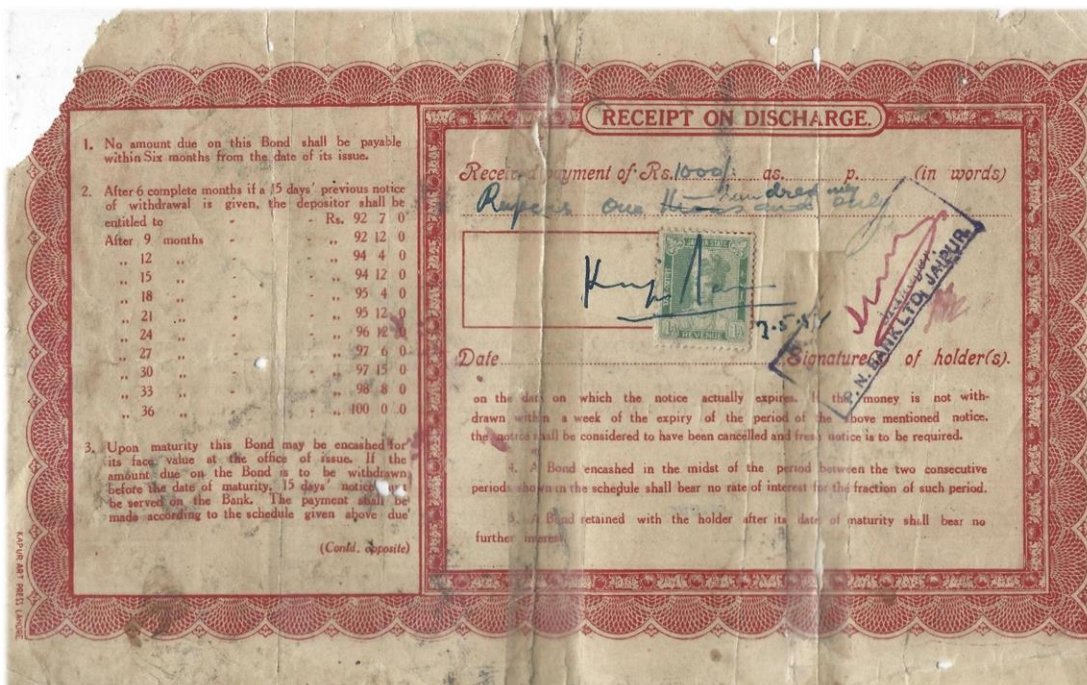 1. No amount due on this Bond shall be payable
within Six months from the date of its issue.
2. After 6 complete months if a 15 days' previous notice
of withdrawal is given, the depositor shall be
entitled to - - Rs. 92 7 0
After 9 months - - - ,, 92 12 0
,, 12 ,, - - - ,, 94 4 0
,, 15 ,, - - - ,, 94 12 0
,, 18 ,, - - - ,, 95 4 0
,, 21 ,, - - - ,, 95 12 0
,, 24 ,, - - - ,, 96 12 0
,, 27 ,, - - - ,, 97 6 0
,, 30 ,, - - - ,, 97 15 0
,, 33 ,, - - - ,, 98 8 0
,, 36 ,, - - - ,, 100 0 0
3. Upon maturity this Bond may be encashed for
its face value at the office of issue. If the
amount due on the Bond is to be withdrawn
before the date of maturity, 15 days' notice must
be served on the Bank. The payment shall be
made according to the schedule given above due
(Contd. opposite)
KAPUR ART PRESS LAHORE
RECEIPT ON DISCHARGE.
Received payment of Rs. 1000/- as. p. (in words)
Rupees one thousand hundred only
STATE
REVENUE
7.5.54
P. N. BANK LTD, JAIPUR.
Date Signature of holder(s).
on the date on which the notice actually expires. If the money is not with-
drawn within a week of the expiry of the period of the above mentioned notice.
the notice shall be considered to have been cancelled and fresh notice is to be required.
4. A Bond encashed in the midst of the period between the two consecutive
periods shown in the schedule shall bear no rate of interest for the fraction of such period.
5. A Bond retained with the holder after its date of maturity shall bear no
further interest.